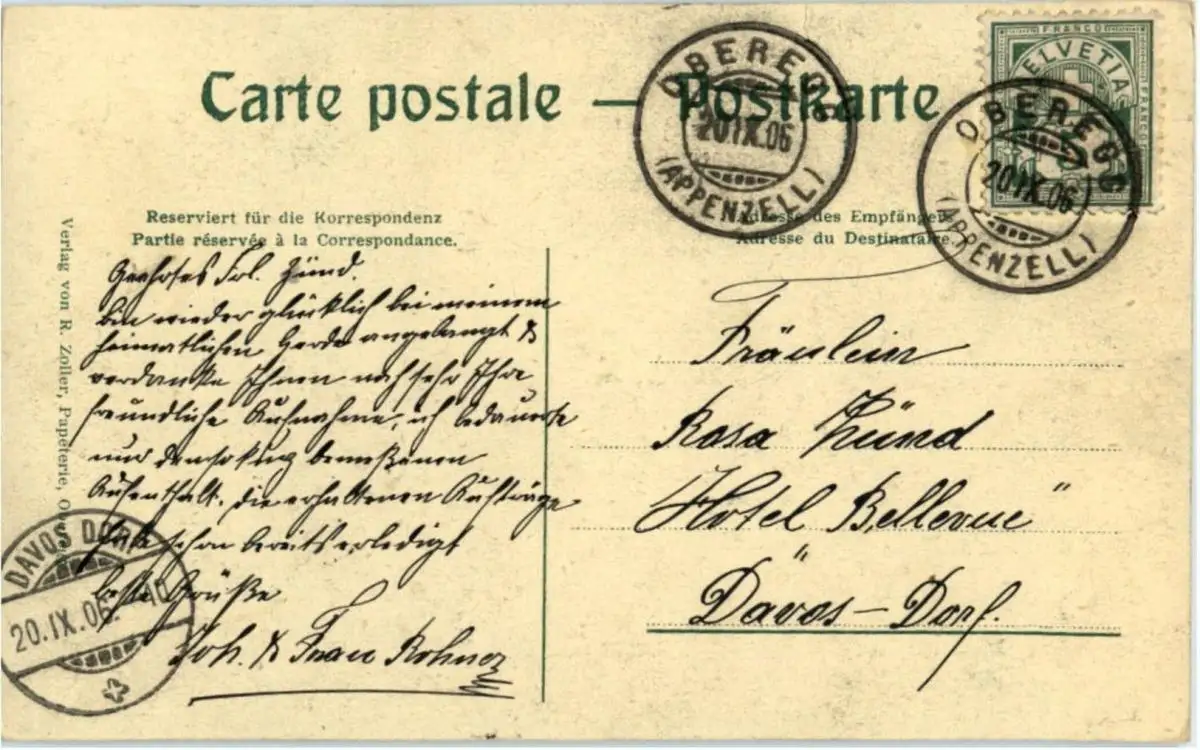 Carte postale — Postkarte
FRANCO
HELVETIA
FRANCO
OBEREGG
20.IX.06
(APPENZELL)
OBEREGG
20.IX.06
(APPENZELL)
Reserviert für die Korrespondenz
Partie réservée à la Correspondance.
Adresse des Empfängers
Adresse du Destinataire.
Verlag von R. Zoller, Papeterie,
Geehrtes Frl. Zünd.
bin wieder glücklich bei meinem
heimatlichen Herde angelangt &
verdanke Ihnen noch sehr Ihre
freundliche Aufnahme, ich bedauerte
nur den kurz bemeßenen
Aufenthalt. die erhaltenen Aufträge
habe schon bereits erledigt
beste Grüße
Joh. & Frau Rohner
Fräulein
Rosa Zünd
Hotel Bellevue "
Davos-Dorf.
DAVOS DORF
20.IX.06.-10